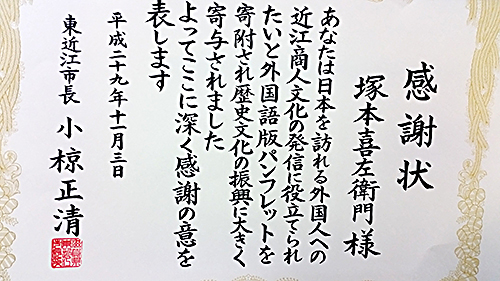 感謝状
塚本喜左衛門様
あなたは日本を訪れる外国人への
近江商人文化の発信に役立てられ
たいと外国語版パンフレットを
寄附され歴史文化の振興に大きく
寄与されました
よってここに深く感謝の意を
表します
平成二十九年十一月三日
東近江市長 小椋正清